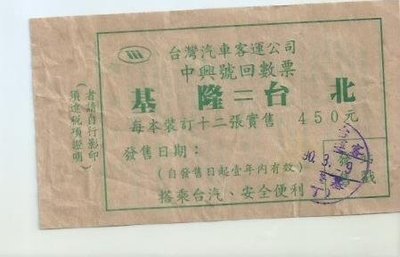 台灣汽車客運公司
中興號回數票
基隆=台北
每本裝訂十二張實售 450元
發售日期：
(自發售日起壹年內有效)
搭乘台汽、安全便利
須逐級項證明
者請自行影印
90.3.